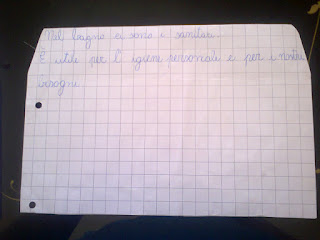 Nel bagno ci sono i sanitari.
È utile per l'igiene personale e per i nostri
bisogni.